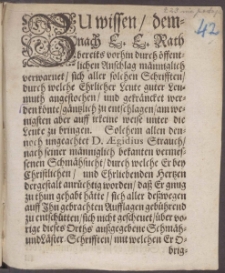 42
ZU wissen / dem-
nach E. E. Rath
bereits vorhin durch öffent-
lichen Anschlag männiglich
verwarnet / sich aller solchen Schrifften /
durch welche Ehrlicher Leute guter Leu-
muth angefochten / und gekräncket wer-
den könte / gäntzlich zu entschlagen / am we-
nigsten aber auff einerley weise unter die
Leute zu bringen. Solchem allen den-
noch ungeachtet D. Ægidius Strauch /
nach seiner männiglich bekanten vermes-
senen Schmähsucht / durch welche Er bey
Christlichen / und Ehrliebenden Hertzen
dergestalt anrüchtig worden / daß Er gnug
zu thun gehabt hätte / sich aller deswegen
auff Jhn gebrachten Aufflagen gebührend
zu entschütten / sich nicht gescheuet / über vo-
rige dieses Orths außgegebene Schmäh-
und Läster Schrifften / mit welchen Er O-
brig-